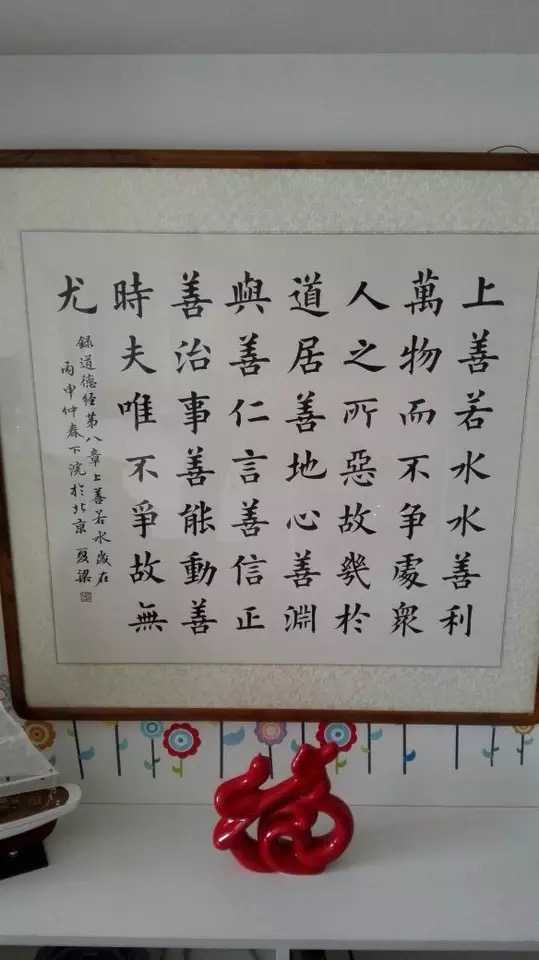 上善若水水善利
萬物而不争處衆
人之所惡故幾於
道居善地心善淵
與善仁言善信正
善治事善能動善
時夫唯不爭故無
尤
録道德經第八章上善若水歲在
丙申仲春下浣於北京 夏梁
福